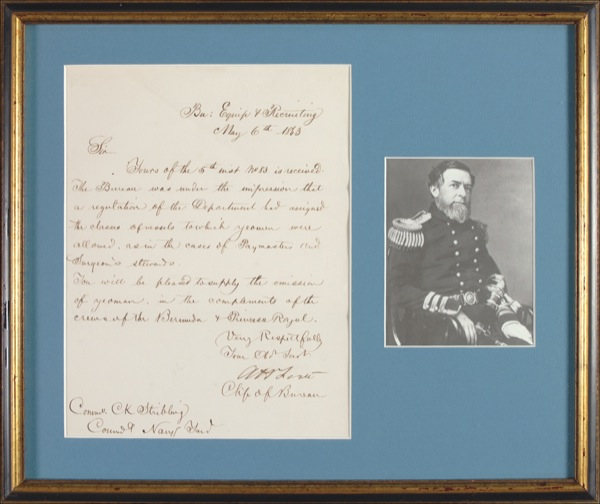 Bu: Equip & Recruiting
May 6th 1863
Sir
Yours of the 5th inst No 83 is received
The Bureau was under the impression that
a regulation of the Department had assigned
the classes of vessels to which yeomen were
allowed, as in the cases of Paymasters and
Surgeon's stewards
You will be pleased to supply the omission
of yeoman in the compliments of the
crews of the Bermuda & Princess Royal.
Very Respectfully
Your Obt Servt
Chief of Bureau
Commo. C K Stribling
Comdt Navy Yard